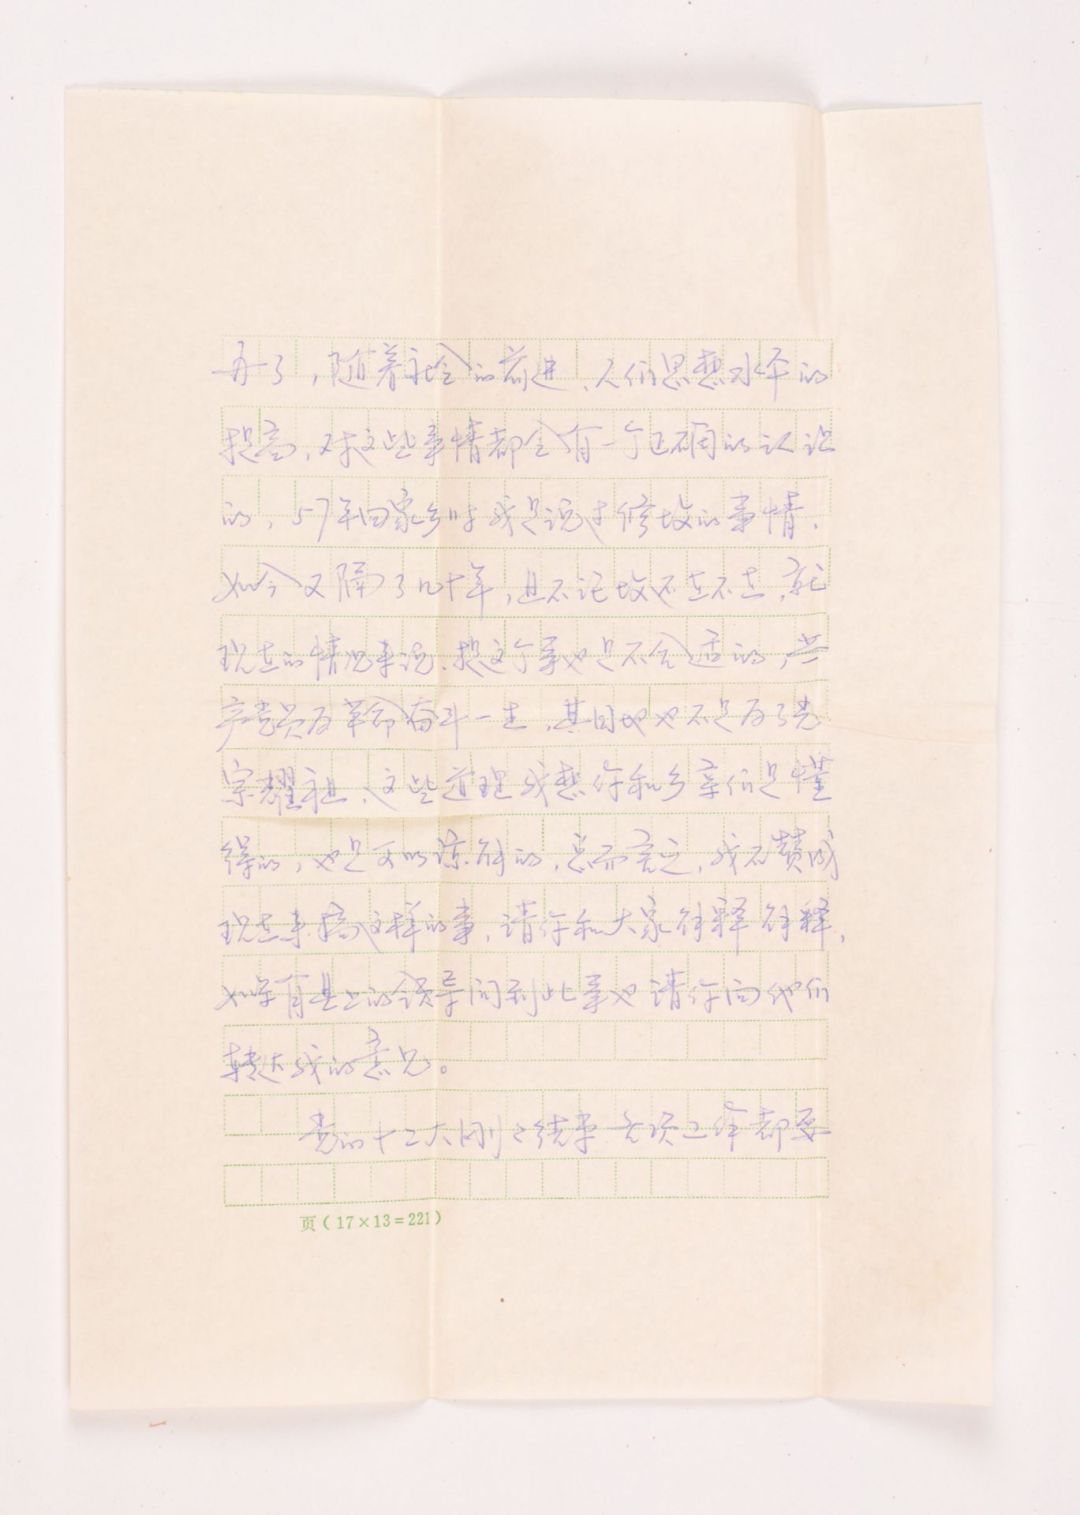 再了，随着社会的前进、人们思想水平的
提高，对这些事情都会有一个正确的认识
的，57年回家乡时我是说过修坟的事情，
如今又隔了几十年，且不论坟还在不在，就
现在的情况来说，提这个事也是不合适的，共
产党员为革命奋斗一生，其目地也不是为了光
宗耀祖、这些道理我想你和乡亲们是懂
得的，也是可以谅解的，总而言之，我不赞成
现在来搞这样的事，请你和大家解释解释，
如果有县上的领导问到此事也请你向他们
转达我的意见。
党的十二大刚刚结束 各项工作都要
页（17×13＝221）